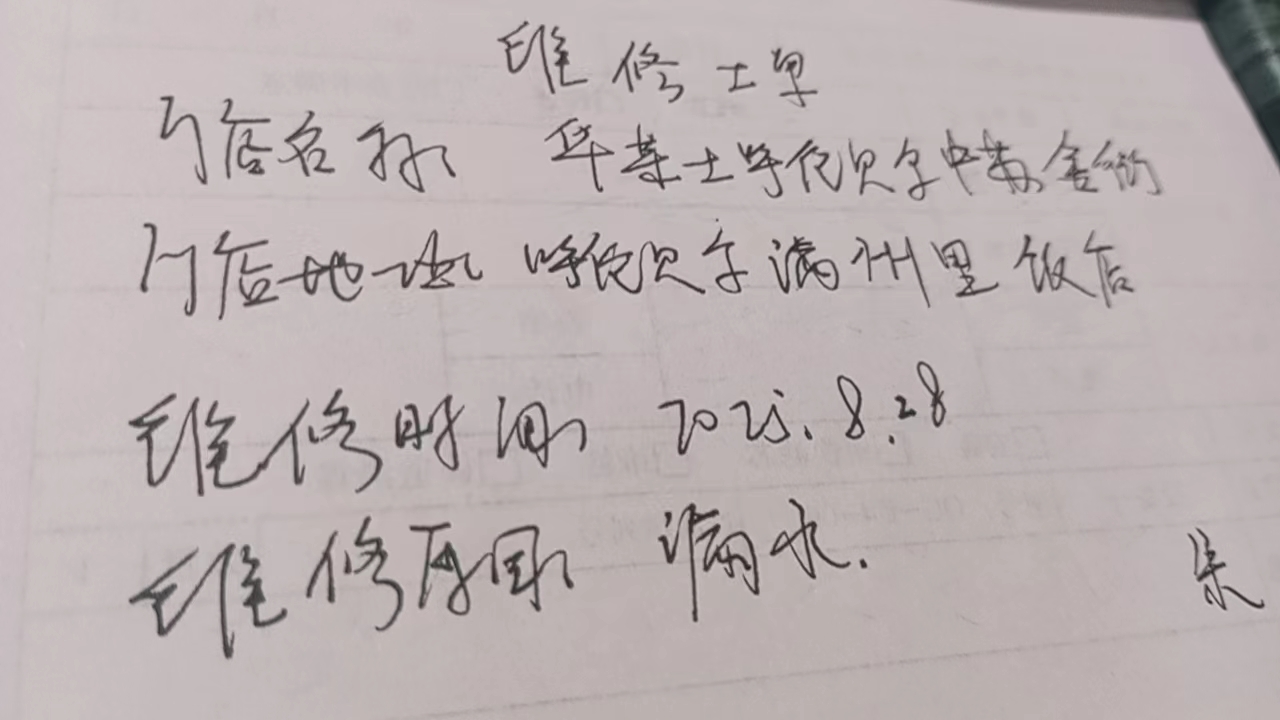 维修工单
门店名称 华莱士呼伦贝尔中苏金街
门店地址 呼伦贝尔满州里饭店
维修时间 2025.8.28
维修原因 漏水.
朱